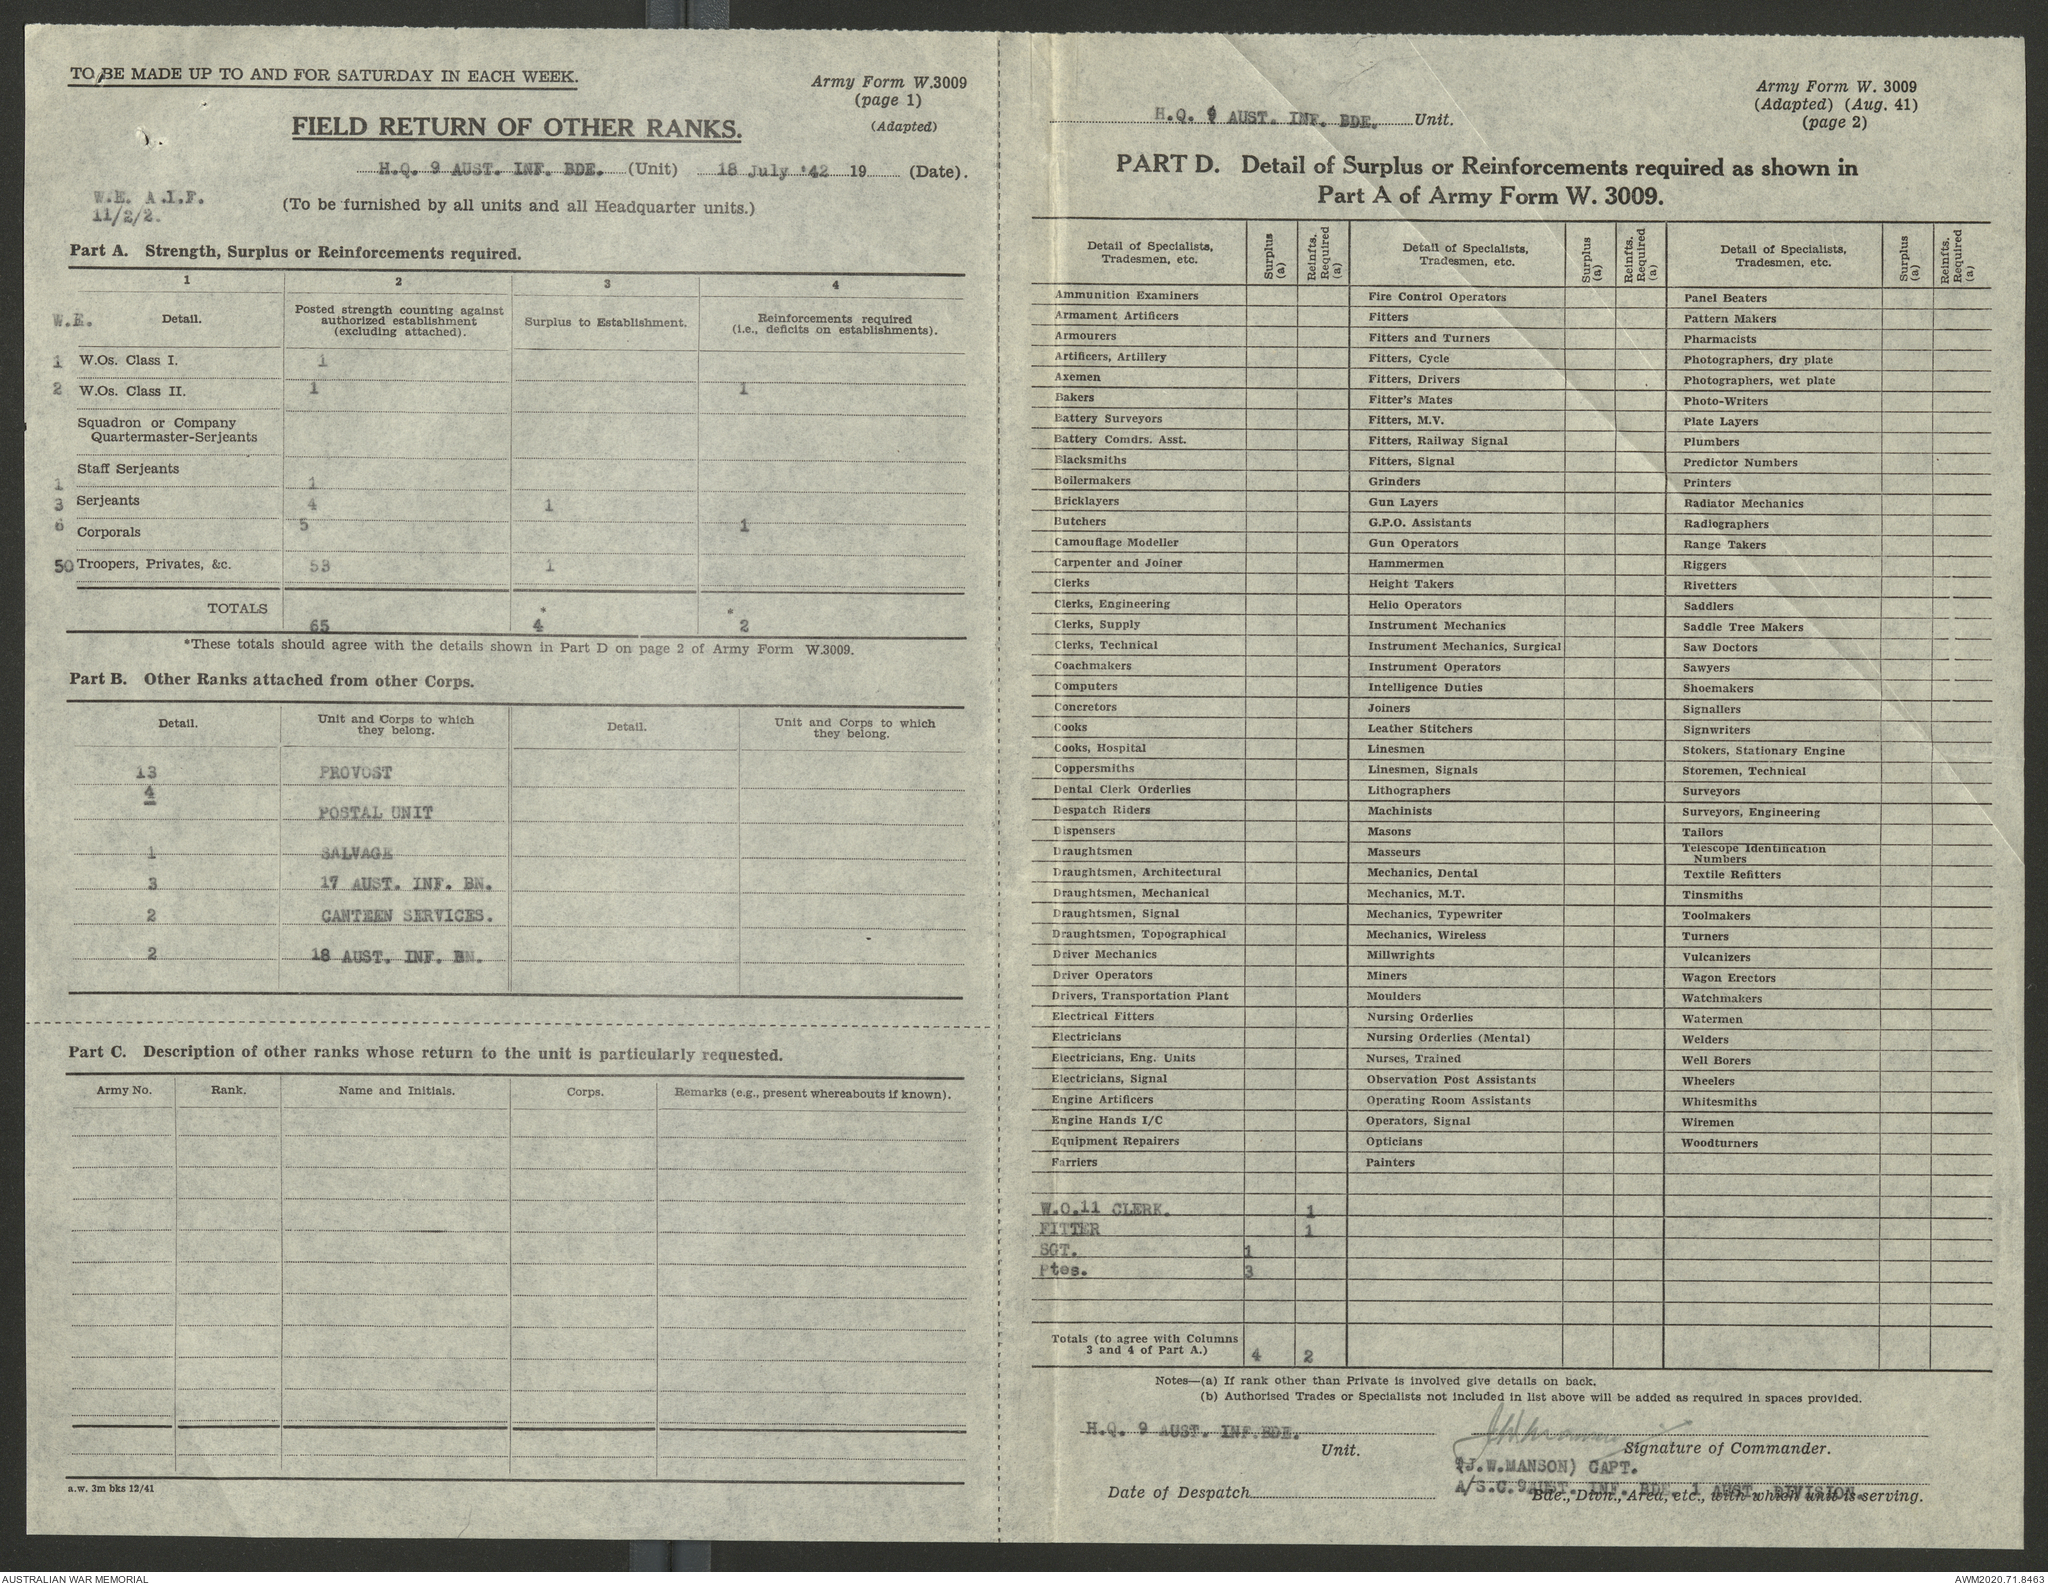 TO BE MADE UP TO AND FOR SATURDAY IN EACH WEEK.
Army Form W.3009
(page 1)
(Adapted)
FIELD RETURN OF OTHER RANKS.
H.Q. 9 AUST. INF. BDE. (Unit) 18 July '42 19 (Date).
W.E. A.I.F.
11/2/2.
(To be furnished by all units and all Headquarter units.)
Part A. Strength, Surplus or Reinforcements required.
1 2 3 4
W.E. Detail. Posted strength counting against authorized establishment (excluding attached). Surplus to Establishment. Reinforcements required (i.e., deficits on establishments).
1 W.Os. Class I. 1
2 W.Os. Class II. 1 1
Squadron or Company
Quartermaster-Serjeants
Staff Serjeants
1 1
3 Serjeants 4 1
6 Corporals 5 1
50 Troopers, Privates, &c. 53 1
TOTALS * *
65 4 2
*These totals should agree with the details shown in Part D on page 2 of Army Form W.3009.
Part B. Other Ranks attached from other Corps.
Detail. Unit and Corps to which they belong. Detail. Unit and Corps to which they belong.
13 PROVOST
4
POSTAL UNIT
1 SALVAGE
3 17 AUST. INF. BN.
2 CANTEEN SERVICES.
2 18 AUST. INF. BN.
Part C. Description of other ranks whose return to the unit is particularly requested.
Army No. Rank. Name and Initials. Corps. Remarks (e.g., present whereabouts if known).
a.w. 3m bks 12/41
Army Form W. 3009
(Adapted) (Aug. 41)
(page 2)
H.Q. 9 AUST. INF. BDE. Unit.
PART D. Detail of Surplus or Reinforcements required as shown in
Part A of Army Form W. 3009.
Detail of Specialists, Tradesmen, etc. Surplus (a) Reinfts. Required (a) Detail of Specialists, Tradesmen, etc. Surplus (a) Reinfts. Required (a) Detail of Specialists, Tradesmen, etc. Surplus (a) Reinfts. Required (a)
Ammunition Examiners Fire Control Operators Panel Beaters
Armament Artificers Fitters Pattern Makers
Armourers Fitters and Turners Pharmacists
Artificers, Artillery Fitters, Cycle Photographers, dry plate
Axemen Fitters, Drivers Photographers, wet plate
Bakers Fitter's Mates Photo-Writers
Battery Surveyors Fitters, M.V. Plate Layers
Battery Comdrs. Asst. Fitters, Railway Signal Plumbers
Blacksmiths Fitters, Signal Predictor Numbers
Boilermakers Grinders Printers
Bricklayers Gun Layers Radiator Mechanics
Butchers G.P.O. Assistants Radiographers
Camouflage Modeller Gun Operators Range Takers
Carpenter and Joiner Hammermen Riggers
Clerks Height Takers Rivetters
Clerks, Engineering Helio Operators Saddlers
Clerks, Supply Instrument Mechanics Saddle Tree Makers
Clerks, Technical Instrument Mechanics, Surgical Saw Doctors
Coachmakers Instrument Operators Sawyers
Computers Intelligence Duties Shoemakers
Concretors Joiners Signallers
Cooks Leather Stitchers Signwriters
Cooks, Hospital Linesmen Stokers, Stationary Engine
Coppersmiths Linesmen, Signals Storemen, Technical
Dental Clerk Orderlies Lithographers Surveyors
Despatch Riders Machinists Surveyors, Engineering
Dispensers Masons Tailors
Draughtsmen Masseurs Telescope Identification Numbers
Draughtsmen, Architectural Mechanics, Dental Textile Refitters
Draughtsmen, Mechanical Mechanics, M.T. Tinsmiths
Draughtsmen, Signal Mechanics, Typewriter Toolmakers
Draughtsmen, Topographical Mechanics, Wireless Turners
Driver Mechanics Millwrights Vulcanizers
Driver Operators Miners Wagon Erectors
Drivers, Transportation Plant Moulders Watchmakers
Electrical Fitters Nursing Orderlies Watermen
Electricians Nursing Orderlies (Mental) Welders
Electricians, Eng. Units Nurses, Trained Well Borers
Electricians, Signal Observation Post Assistants Wheelers
Engine Artificers Operating Room Assistants Whitesmiths
Engine Hands I/C Operators, Signal Wiremen
Equipment Repairers Opticians Woodturners
Farriers Painters
W.O.11 CLERK. 1
FITTER 1
SGT. 1
Ptes. 3
Totals (to agree with Columns 3 and 4 of Part A.) 4 2
Notes—(a) If rank other than Private is involved give details on back.
(b) Authorised Trades or Specialists not included in list above will be added as required in spaces provided.
H.Q. 9 AUST. INF.BDE.
Unit.
Signature of Commander.
(J.W.MANSON) CAPT.
A/S.C. 9 AUST. INF. BDE. 1 AUST. DIVISION.
Date of Despatch
Bde., Divn., Area, etc., with which unit is serving.
AUSTRALIAN WAR MEMORIAL
AWM2020.71.8463